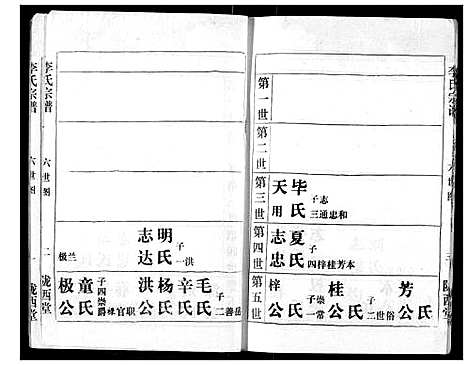 李氏宗谱
六世图
二
陇西堂
第一世
第二世
第三世
第四世
第五世
天用
毕氏
子三
志通忠和
志忠
夏氏
子四
梓桂芳本
梓公
氏
子一
崇常
桂公
氏
子二
世俗
芳公
氏
李氏宗谱
六世图
二
陇西堂
志达
明氏
子一
洪
极兰
极公
童氏
子四
崇爵禄官职
洪公
杨氏
辛氏
毛氏
子二
善岳